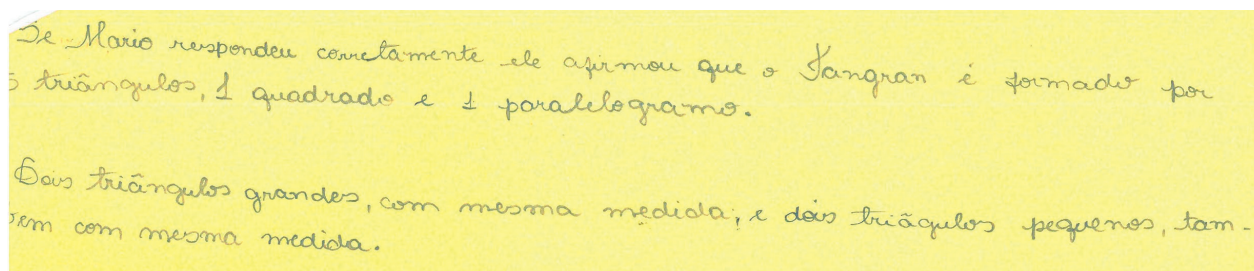 Se Mario respondeu corretamente ele afirmou que o Tangran é formado por
5 triângulos, 1 quadrado e 1 paralelogramo.
Dois triângulos grandes, com mesma medida; e dois triãgulos pequenos, tam-
bem com mesma medida.